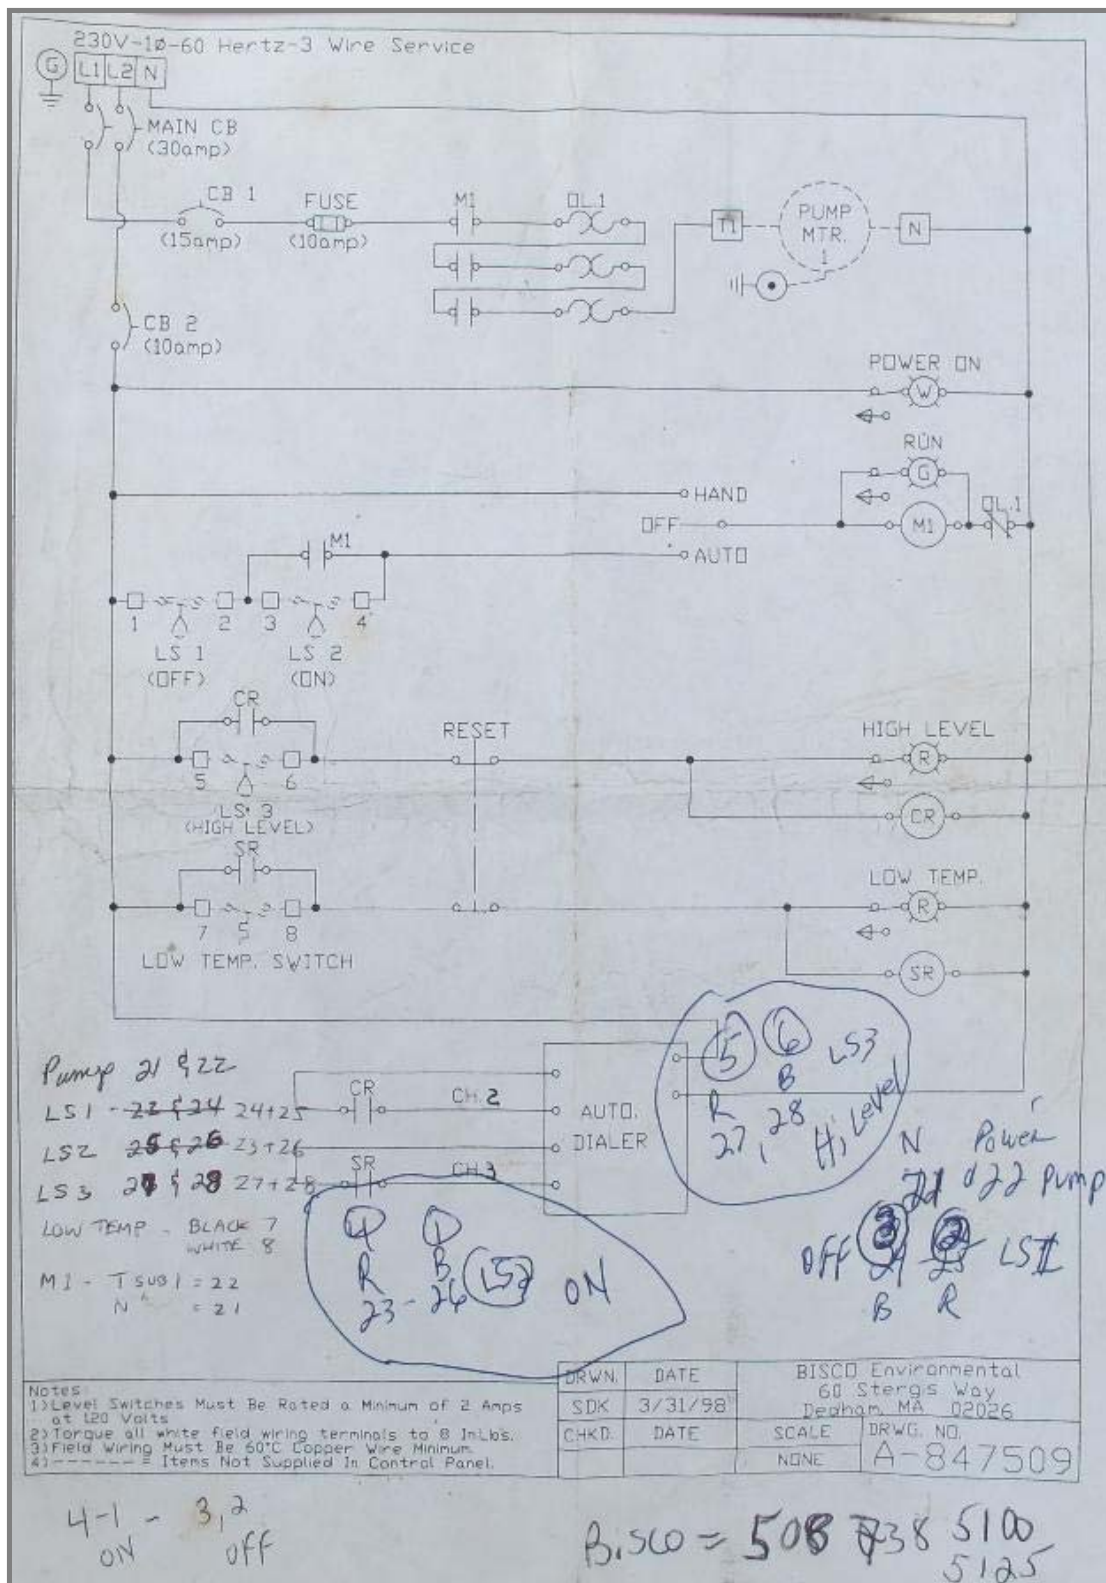 230V-1Ø-60 Hertz-3 Wire Service
G L1 L2 N
MAIN CB
(30amp)
CB 1 FUSE M1 OL.1
(15amp) (10amp)
T1 PUMP MTR. 1 N
CB 2
(10amp)
POWER ON
W
RUN
G
HAND
OFF M1 OL.1
M1
AUTO
1 2 3 4
LS 1 LS 2
(OFF) (ON)
CR
RESET HIGH LEVEL
R
5 6
LS 3
(HIGH LEVEL) CR
SR
LOW TEMP.
R
7 8
LOW TEMP. SWITCH SR
5 6 LS3
R B
27, 28 Hi Level
Pump 21 & 22
LS1 - 22 & 24 24+25
LS2 25 & 26 23+26
LS3 27 & 28 27+28
LOW TEMP - BLACK 7
WHITE 8
M1 - T SUB 1 = 22
N " = 21
CR CH.2
AUTO.
DIALER
SR CH.3
4 1
R B
23-26 LS2 ON
N Power
21 & 22 Pump
OFF
B R
Notes:
1) Level Switches Must Be Rated a Minimum of 2 Amps
at 120 Volts
2) Torque all white field wiring terminals to 8 In.Lbs.
3) Field Wiring Must Be 60°C Copper Wire Minimum.
4) ------ = Items Not Supplied In Control Panel.
DRWN. DATE
SDK 3/31/98
CHKD. DATE
BISCO Environmental
60 Stergis Way
Dedham, MA 02026
SCALE DRWG. NO.
NONE A-847509
4-1 - 3,2
ON OFF
Bisco = 508 738 5100
5125